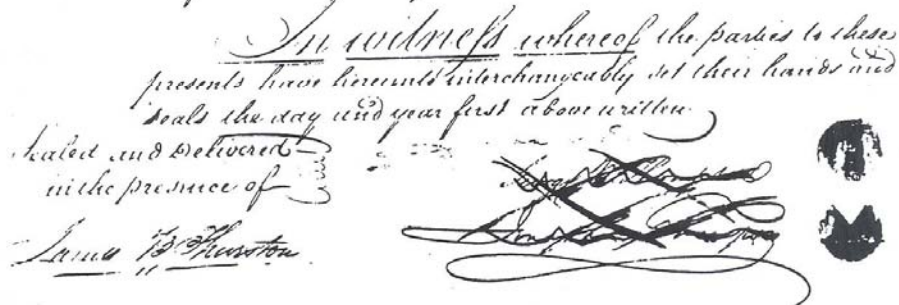 In witneſs whereof the parties to these
presents have hereunto interchangeably set their hands and
seals the day and year first above written
Sealed and Delivered
in the presence of
James B Thurston